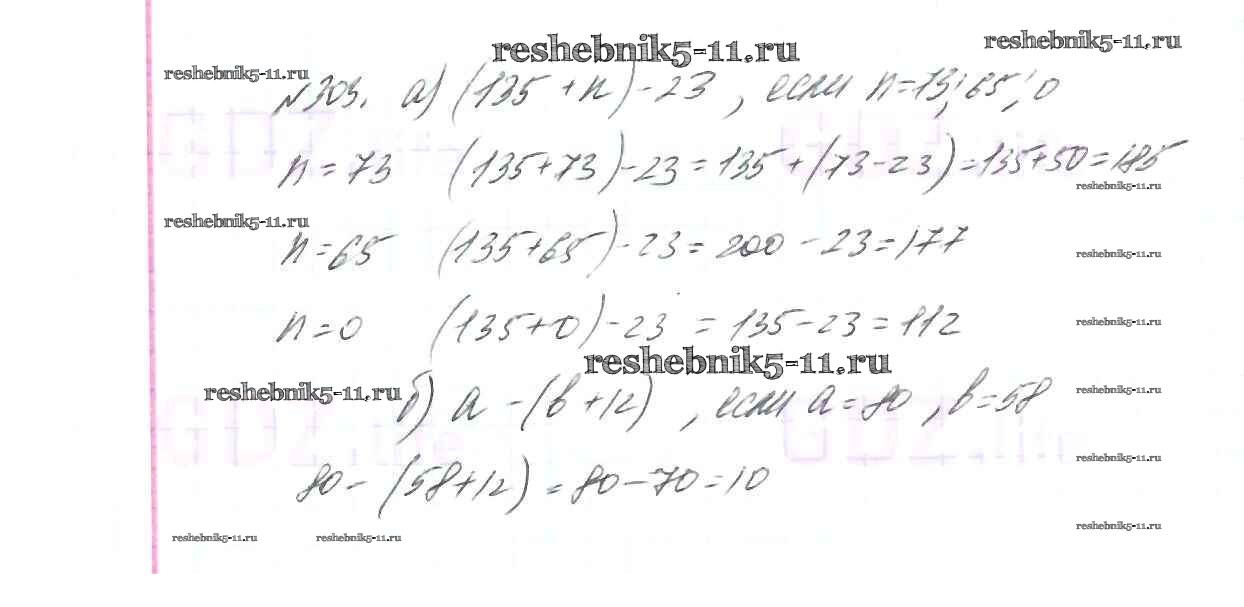 reshebnik5-11.ru
reshebnik5-11.ru
reshebnik5-11.ru
№303. а) (135 + n) - 23 , если n=73; 65; 0
n = 73 (135+73) - 23 = 135 + (73-23) = 135+50 = 185
reshebnik5-11.ru
reshebnik5-11.ru
n = 65 (135+65) - 23 = 200 - 23 = 177
reshebnik5-11.ru
n = 0 (135+0) - 23 = 135 - 23 = 112
reshebnik5-11.ru
reshebnik5-11.ru
reshebnik5-11.ru
reshebnik5-11.ru
б) a - (b + 12) , если a = 80 , b = 58
GDZ.life
reshebnik5-11.ru
80 - (58+12) = 80 - 70 = 10
reshebnik5-11.ru
reshebnik5-11.ru
reshebnik5-11.ru